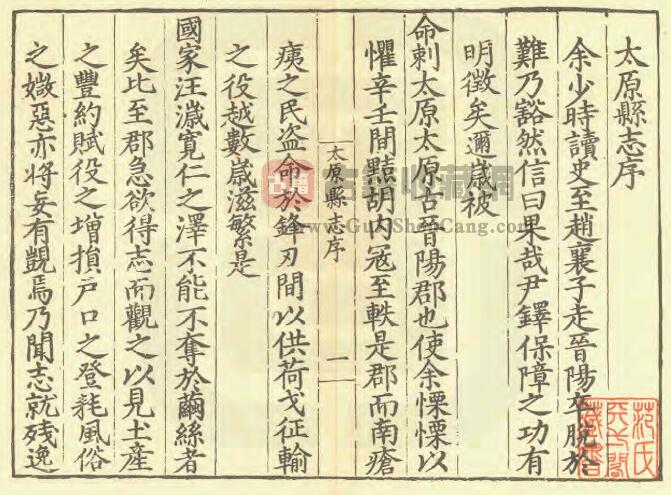 太原縣志序
余少時讀史至趙襄子走晉陽卒脫於
難乃豁然信曰果哉尹鐸保障之功有
明徵矣邇歲被
命刺太原太原古晉陽郡也使余慄慄以
懼辛壬間黠胡内寇至軼是郡而南瘡
太原縣志序 一
痍之民盗命於鋒刃間以供荷戈征輸
之役越數歲滋繁是
國家汪濊寬仁之澤不能不奪於繭絲者
矣比至郡急欲得志而觀之以見土産
之豐約賦役之增損戸口之登耗風俗
之媺惡亦將妄有覬焉乃聞志就残逸
范氏天一閣藏書
www.GuJiShouCang.com